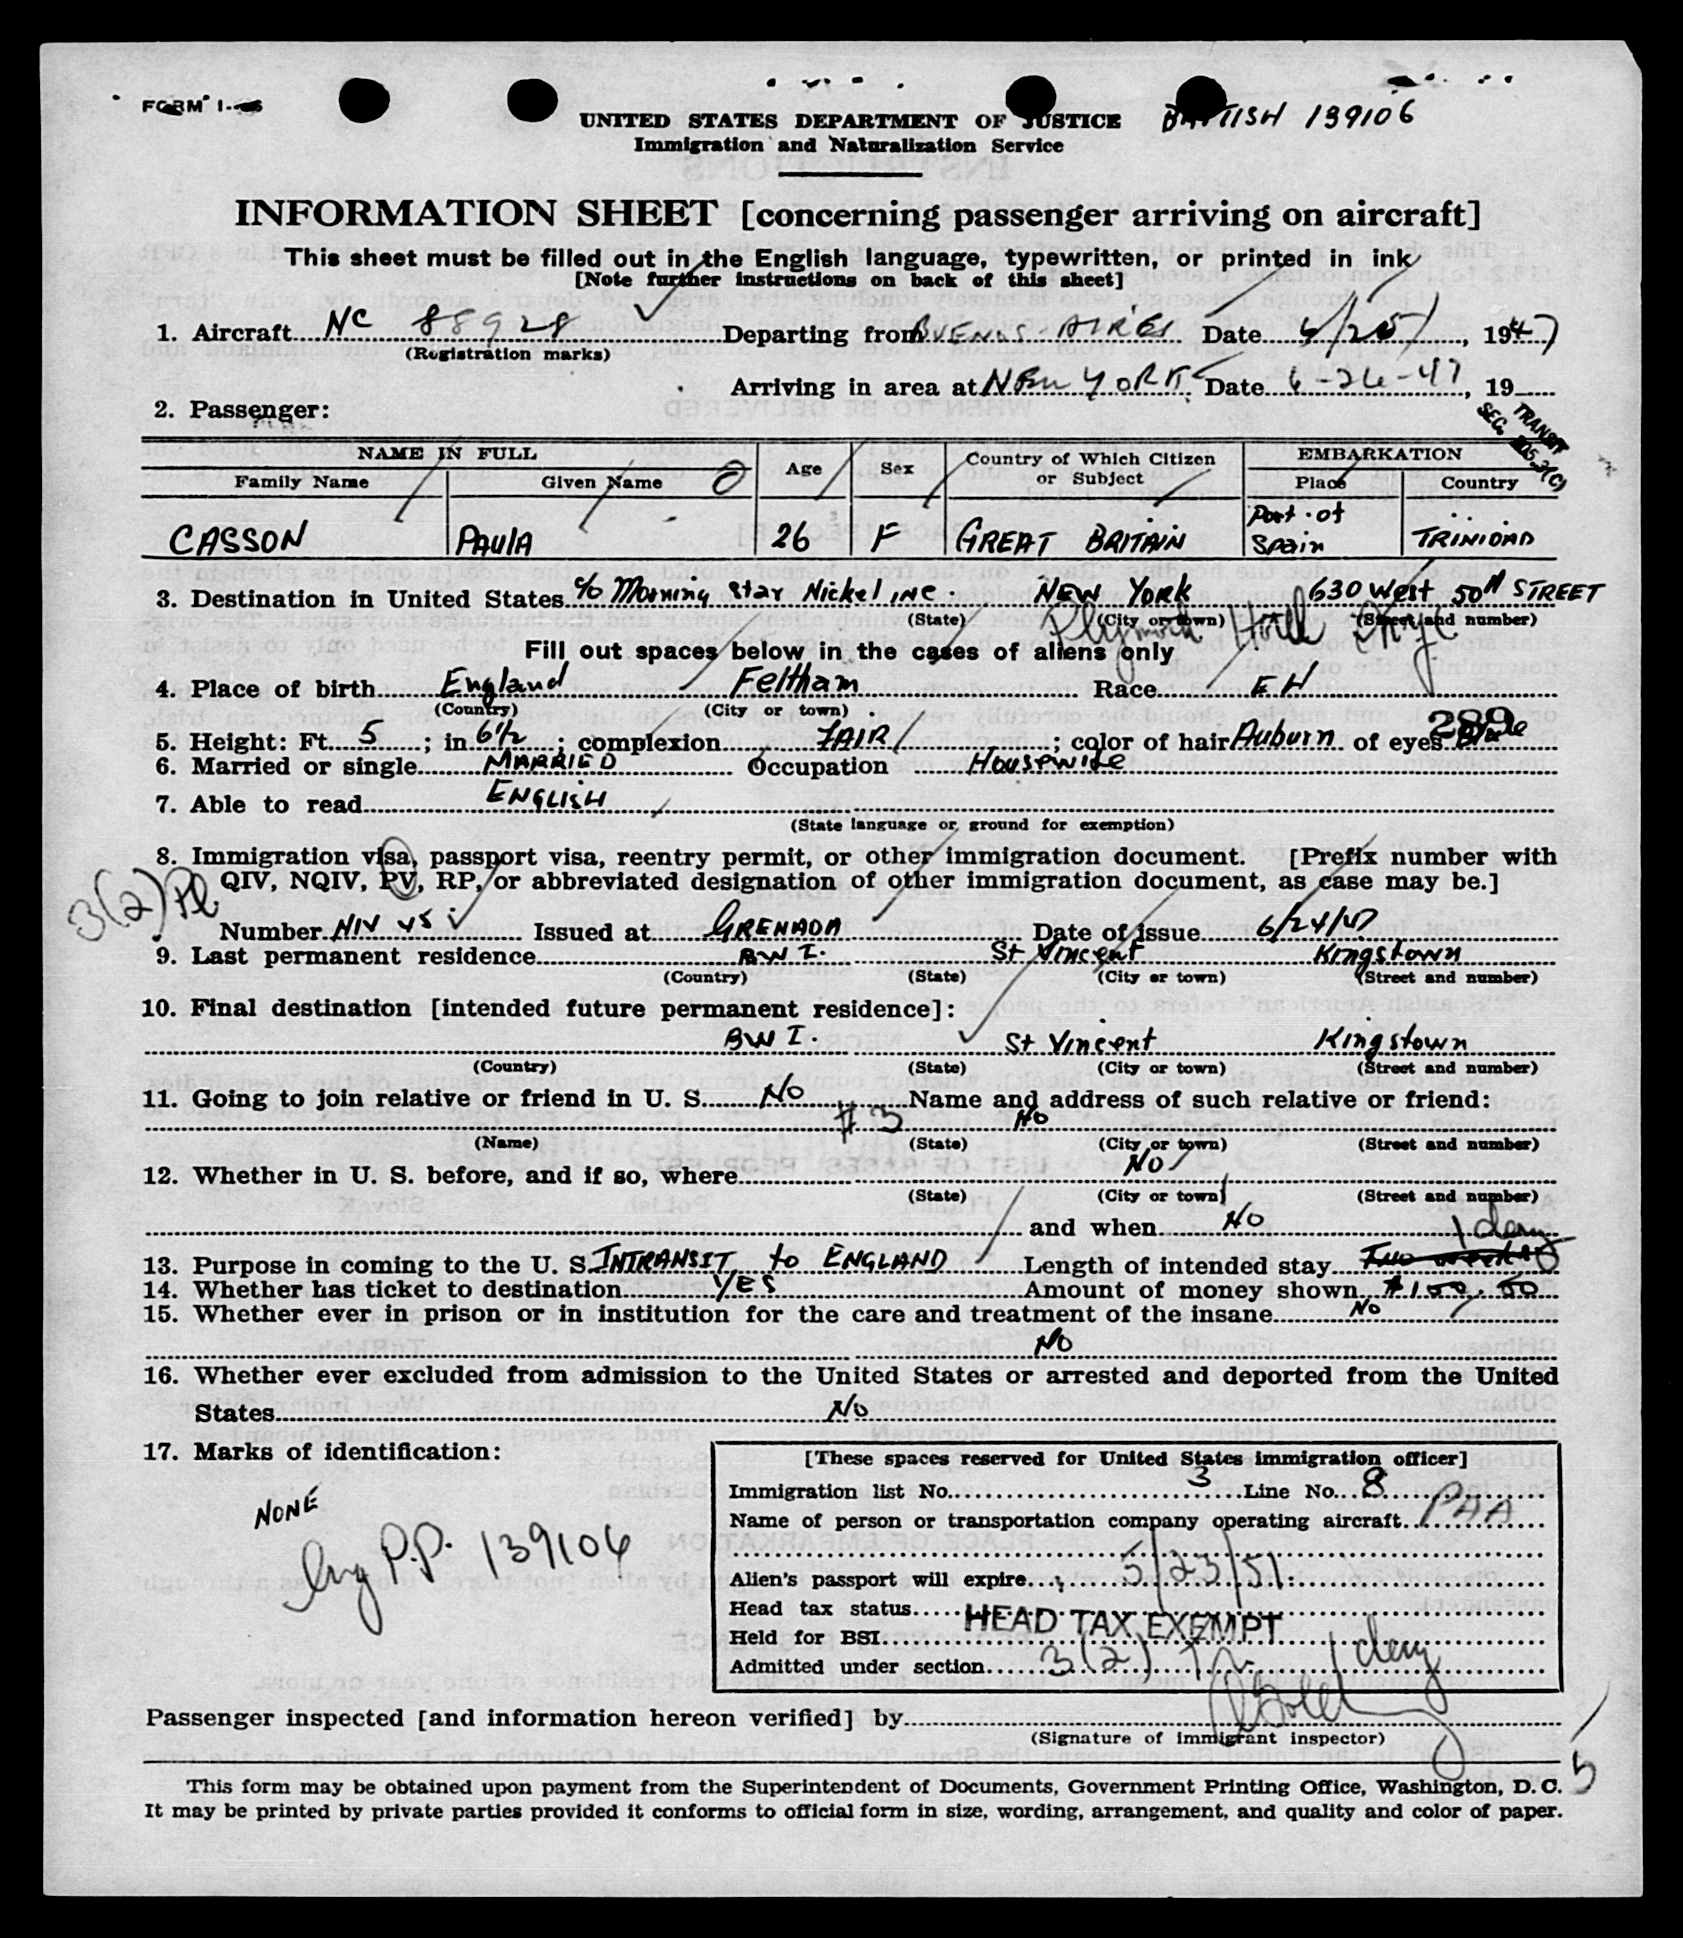 FORM I-
UNITED STATES DEPARTMENT OF JUSTICE BRITISH 139106
Immigration and Naturalization Service
INFORMATION SHEET [concerning passenger arriving on aircraft]
This sheet must be filled out in the English language, typewritten, or printed in ink
[Note further instructions on back of this sheet]
1. Aircraft NC 88928 Departing from BUENOS-AIRES Date 6/25/, 1947
(Registration marks)
Arriving in area at NEW YORK Date 6-26-47, 19
2. Passenger:
TRANSIT
SEC.
NAME IN FULL Age Sex Country of Which Citizen or Subject EMBARKATION
Family Name Given Name Place Country
CASSON PAULA 26 F GREAT BRITAIN Port of Spain TRINIDAD
3. Destination in United States c/o Morning Star Nickel INC. NEW YORK 630 West 50th STREET
(State) (City or town) (Street and number)
Plymouth
Fill out spaces below in the cases of aliens only
4. Place of birth England Feltham Race EH
(Country) (City or town)
289
5. Height: Ft. 5; in 6 1/2; complexion FAIR; color of hair Auburn of eyes Blue
6. Married or single MARRIED Occupation Housewife
7. Able to read ENGLISH
(State language or ground for exemption)
8. Immigration visa, passport visa, reentry permit, or other immigration document. [Prefix number with
QIV, NQIV, PV, RP, or abbreviated designation of other immigration document, as case may be.]
3(2)
Number NIV V5 Issued at GRENADA Date of issue 6/24/47
9. Last permanent residence BWI. St Vincent Kingstown
(Country) (State) (City or town) (Street and number)
10. Final destination [intended future permanent residence]:
BWI. St Vincent Kingstown
(Country) (State) (City or town) (Street and number)
11. Going to join relative or friend in U. S. No Name and address of such relative or friend:
#3 No
(Name) (State) (City or town) (Street and number)
12. Whether in U. S. before, and if so, where No
(State) (City or town) (Street and number)
and when No
1 day
13. Purpose in coming to the U. S. INTRANSIT to ENGLAND Length of intended stay Two weeks
14. Whether has ticket to destination YES Amount of money shown $100.00
15. Whether ever in prison or in institution for the care and treatment of the insane No
No
16. Whether ever excluded from admission to the United States or arrested and deported from the United
States No
17. Marks of identification:
NONE
P.P. 139106
[These spaces reserved for United States immigration officer]
Immigration list No. 3 Line No. 8
Name of person or transportation company operating aircraft PAA
Alien's passport will expire 5/23/51
Head tax status HEAD TAX EXEMPT
Held for BSI
Admitted under section 3(2) 1 day
Passenger inspected [and information hereon verified] by
(Signature of immigrant inspector)
5
This form may be obtained upon payment from the Superintendent of Documents, Government Printing Office, Washington, D. C.
It may be printed by private parties provided it conforms to official form in size, wording, arrangement, and quality and color of paper.